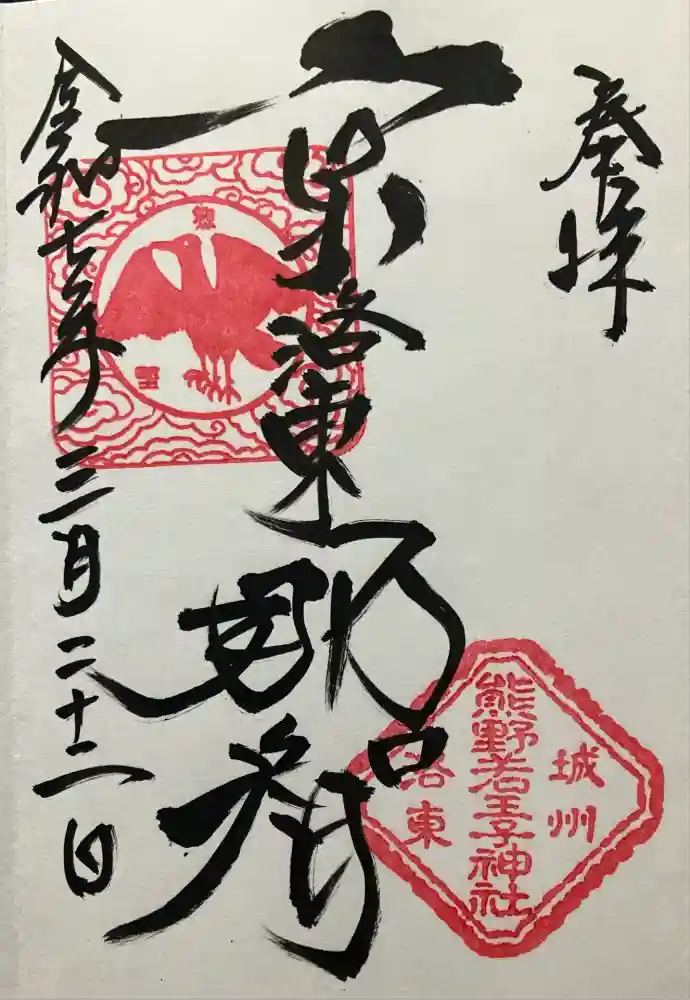 奉拝
京洛東
那智
令和七年三月二十二日
城州
熊野若王子神社
洛東